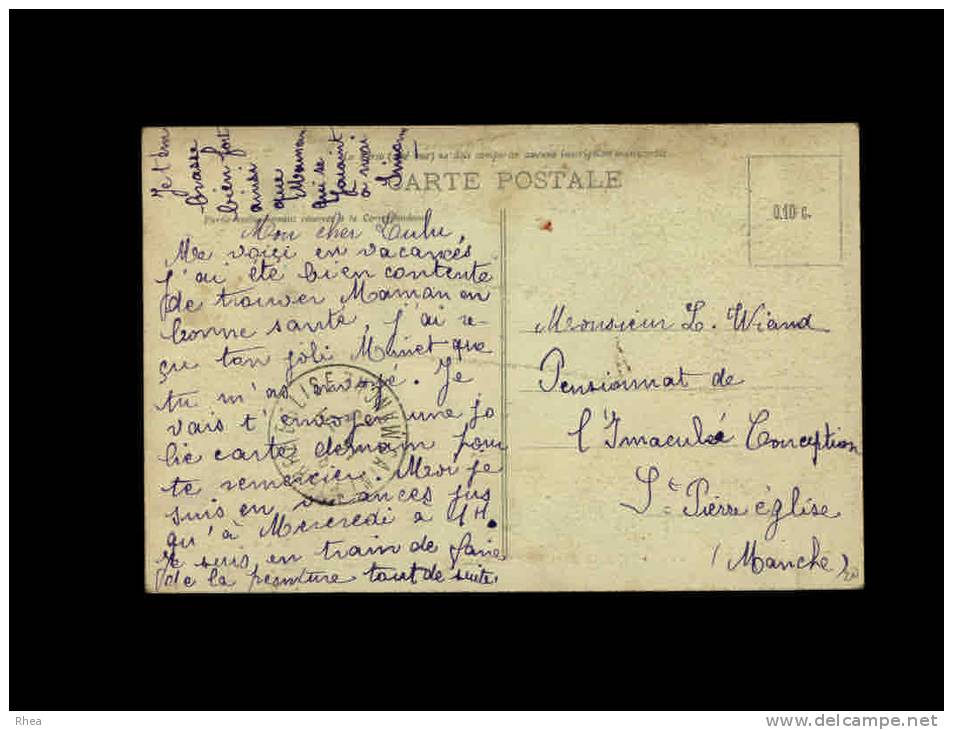 CARTE POSTALE
0.10 c.
Mon cher Lulu,
Me voiçi en vacances
j'ai été bien contente
de trouver Maman en
bonne santé, j'ai re-
çu ton joli Minet que
tu m'as envoyé. Je
vais t'envoyer une jo
lie carte demain pour
te remercier. Moi je
suis en vacances jus
qu'à Mercredi à 1H.
Je suis en train de faire
de la peinture tout de suite.
Je t'em
brasse
bien fort
ainsi
que
Maman
qui se
joint
à moi
Monsieur L. Wiand
Pensionnat de
l'Imaculée Conception
St Pierre église
(Manche)
ST PIERRE EGLISE
MANCHE
Rhea
www.delcampe.net